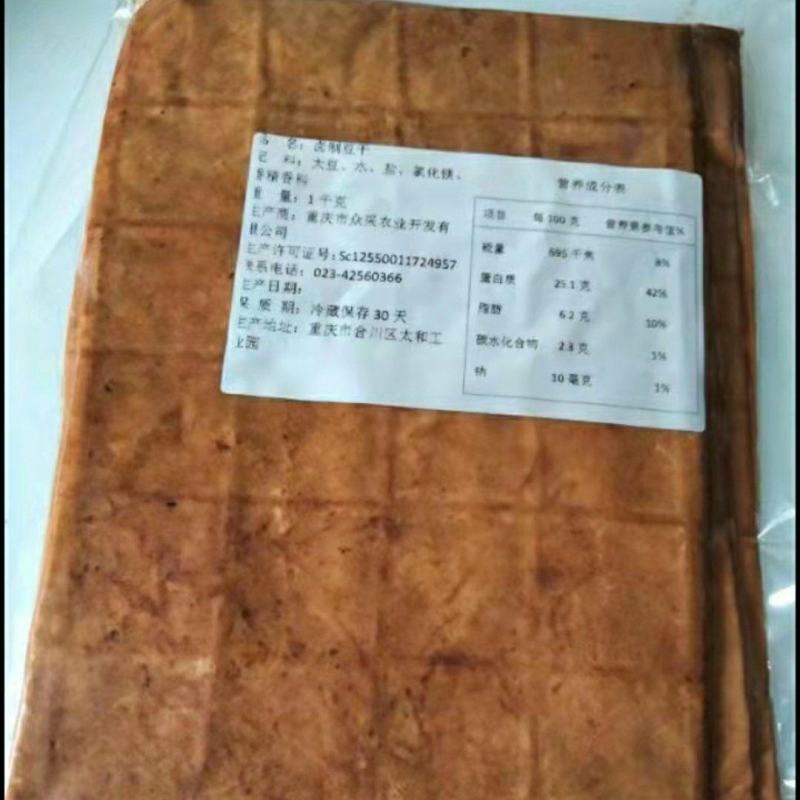 名：卤制豆干
料：大豆、水、盐、氯化镁、
香料
量：1千克
生产商：重庆市众采农业开发有
限公司
生产许可证号：Sc12550011724957
联系电话：023-42560366
生产日期：
保 质 期：冷藏保存30天
生产地址：重庆市合川区太和工
业园
营养成分表
项目 每100克 营养素参考值%
能量 695千焦 8%
蛋白质 25.1克 42%
脂肪 6.2克 10%
碳水化合物 2.3克 1%
钠 10毫克 1%